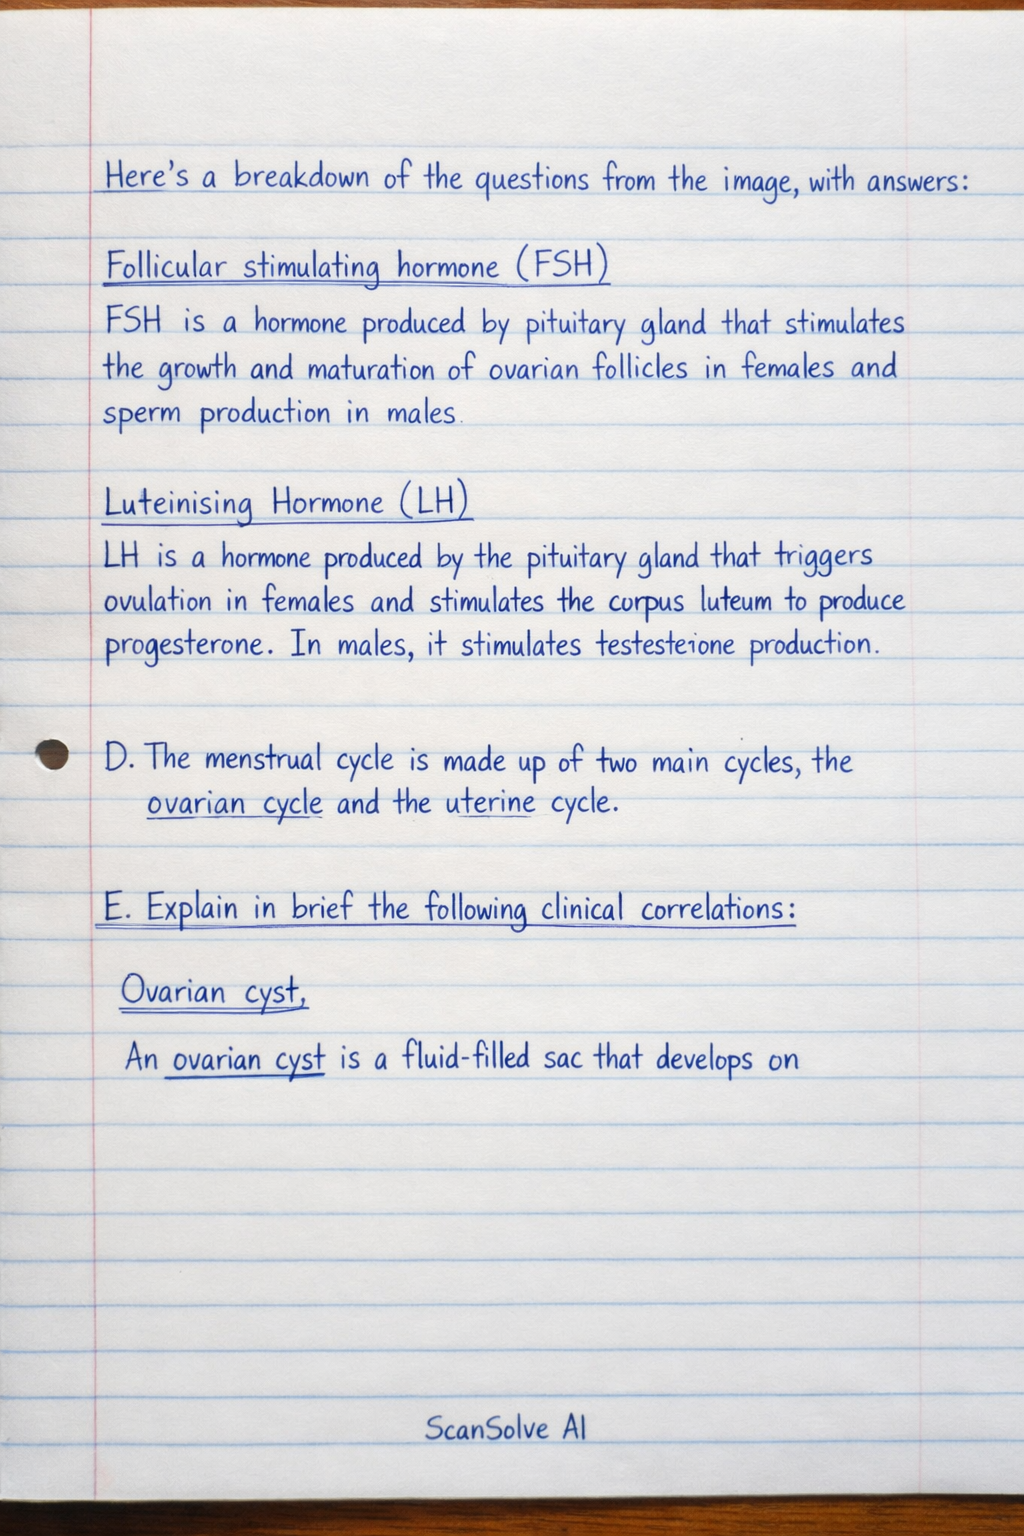 Here's a breakdown of the questions from the image, with answers:
Follicular stimulating hormone (FSH)
FSH is a hormone produced by pituitary gland that stimulates
the growth and maturation of ovarian follicles in females and
sperm production in males.
Luteinising Hormone (LH)
LH is a hormone produced by the pituitary gland that triggers
ovulation in females and stimulates the corpus luteum to produce
progesterone. In males, it stimulates testesteione production.
D. The menstrual cycle is made up of two main cycles, the
ovarian cycle and the uterine cycle.
E. Explain in brief the following clinical correlations:
Ovarian cyst,
An ovarian cyst is a fluid-filled sac that develops on
ScanSolve AI